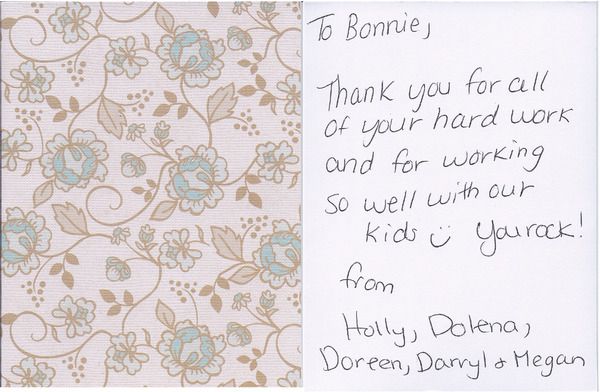 To Bonnie,
Thank you for all
of your hard work
and for working
so well with our
kids ☺ You rock!
from
Holly, Dolena,
Doreen, Darryl & Megan